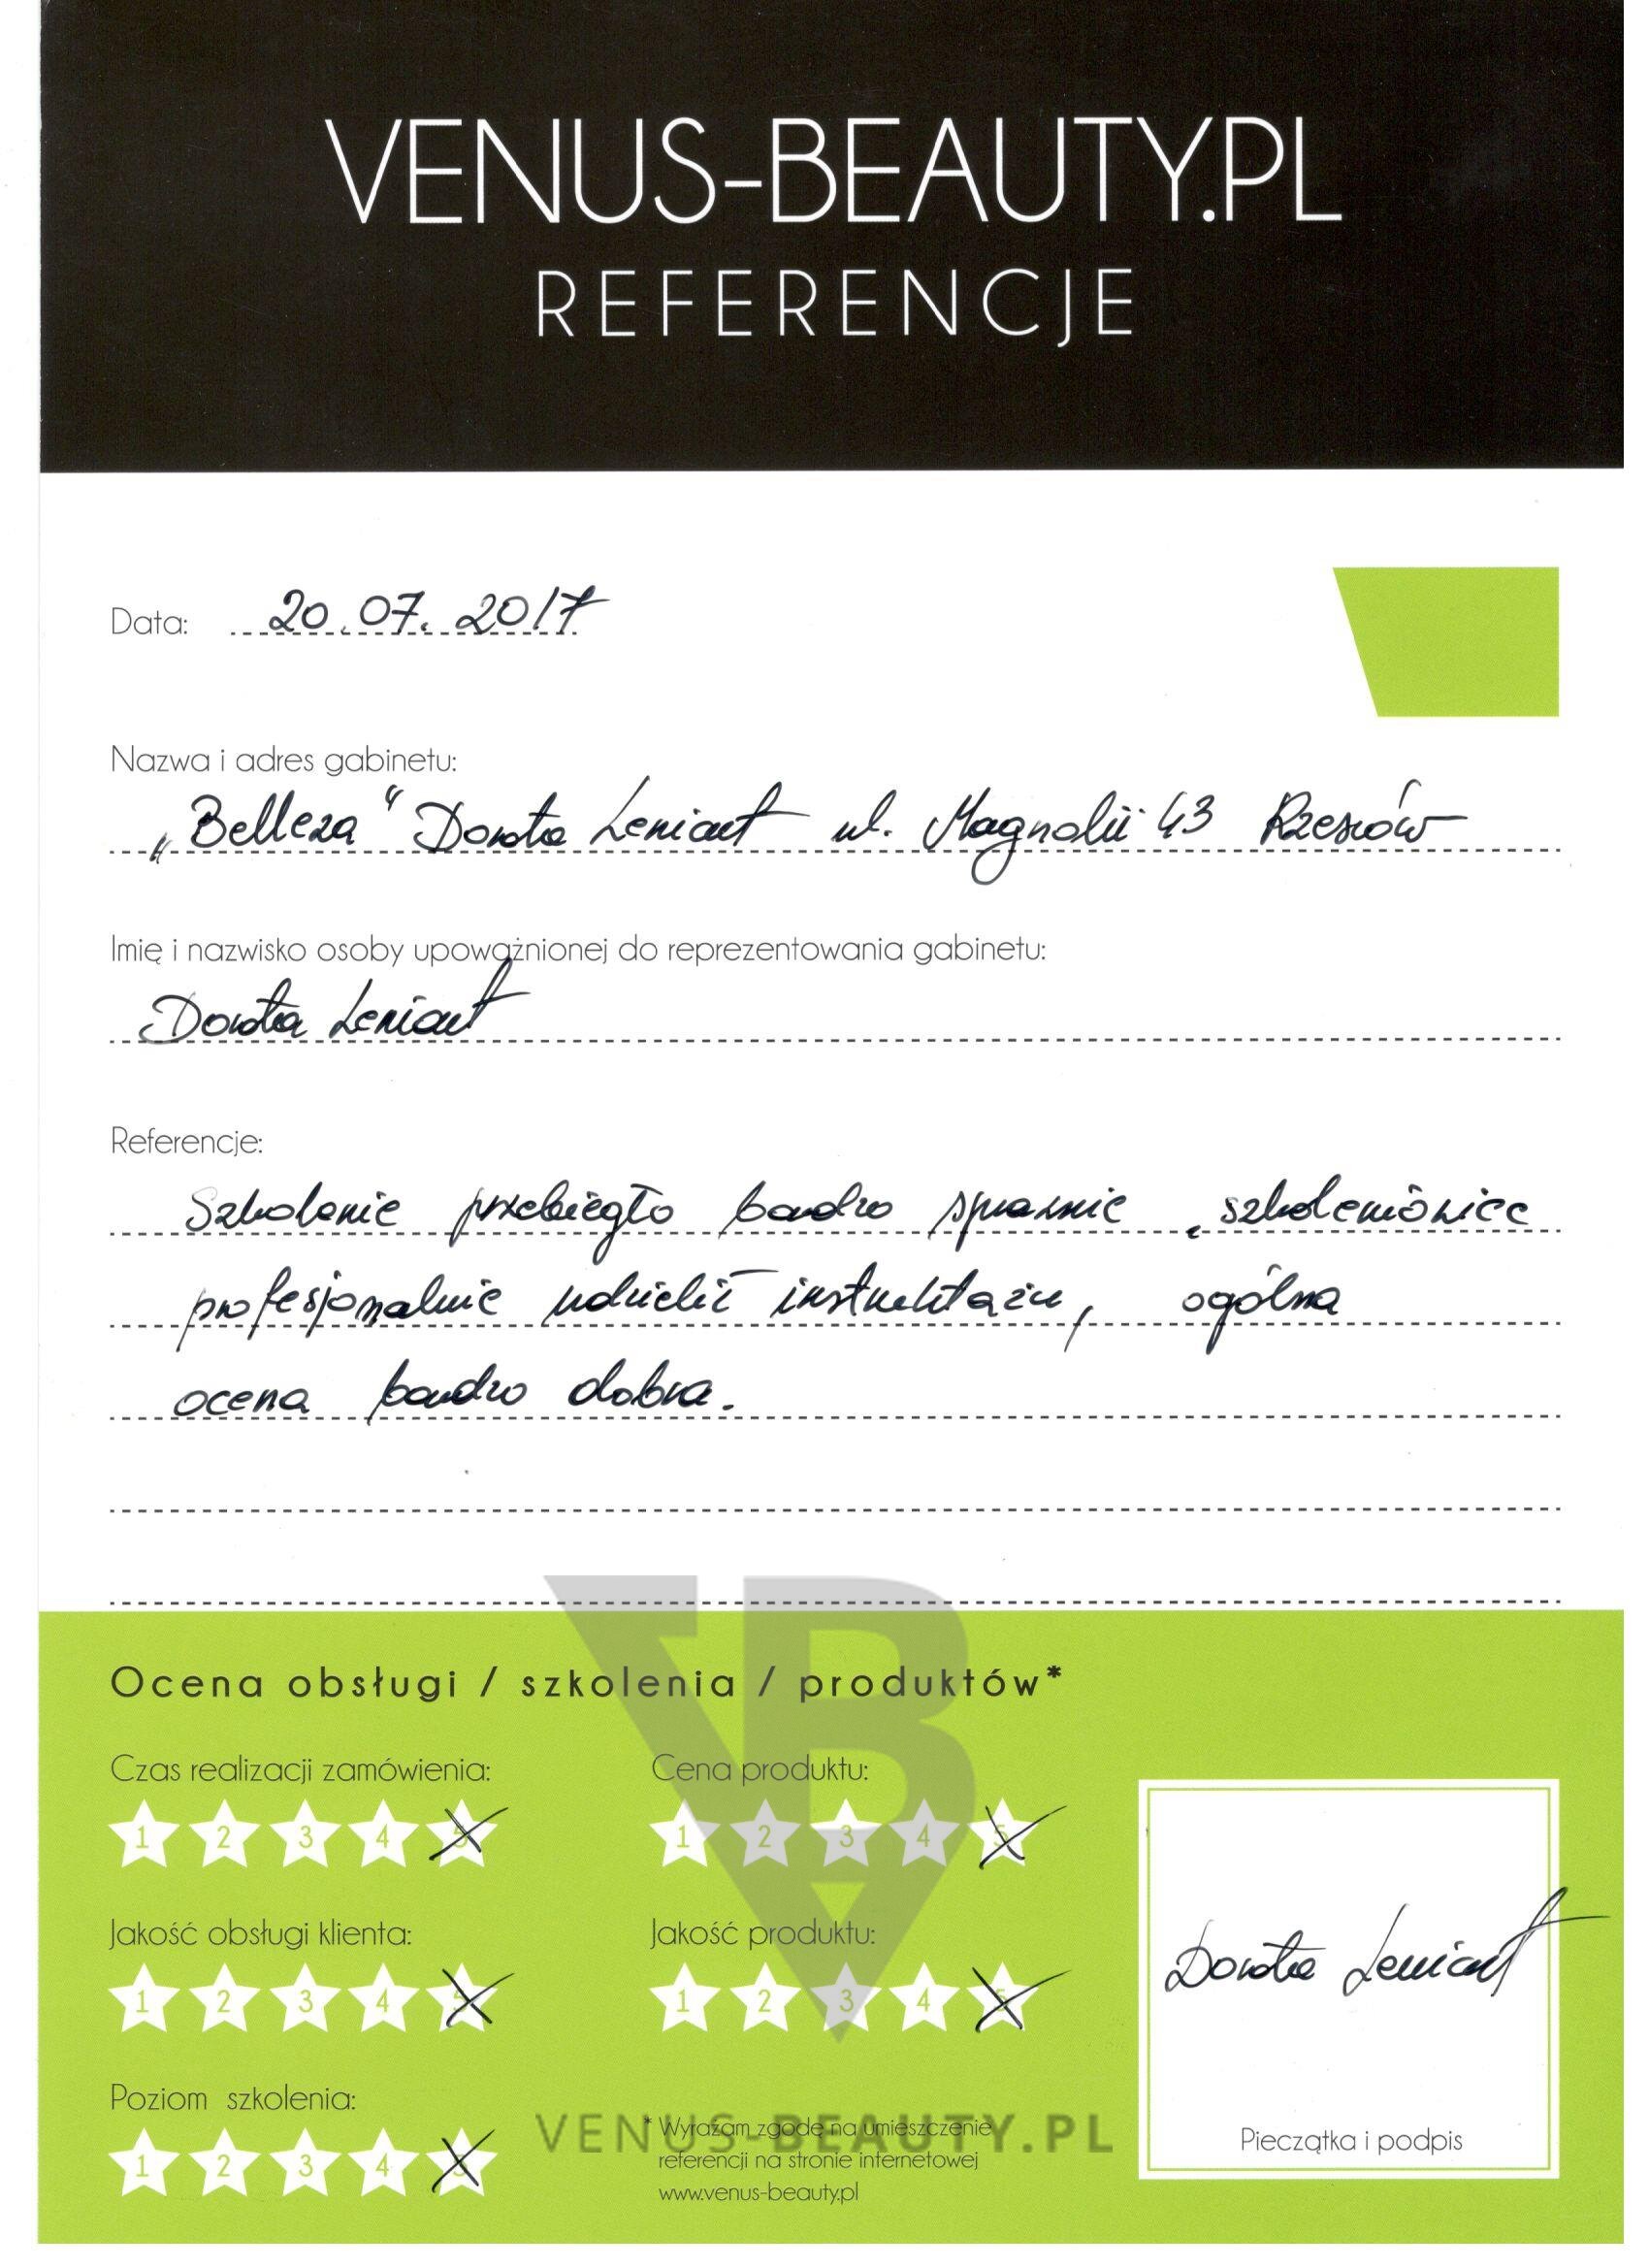 VENUS-BEAUTY.PL
REFERENCJE
Data: 20.07.2017
Nazwa i adres gabinetu:
„Belleza" Dorota Leniart ul. Magnolii 43 Rzeszów
Imię i nazwisko osoby upoważnionej do reprezentowania gabinetu:
Dorota Leniart
Referencje:
Szkolenie przebiegło bardzo sprawnie, szkoleniowiec
profesjonalnie udzielił instruktażu, ogólna
ocena bardzo dobra.
VB
Ocena obsługi / szkolenia / produktów*
Czas realizacji zamówienia: Cena produktu:
1 2 3 4 5 1 2 3 4 5
Jakość obsługi klienta: Jakość produktu:
1 2 3 4 5 1 2 3 4 5
Dorota Leniart
Poziom szkolenia:
1 2 3 4 5
VENUS-BEAUTY.PL
* Wyrażam zgodę na umieszczenie
referencji na stronie internetowej
www.venus-beauty.pl
Pieczątka i podpis